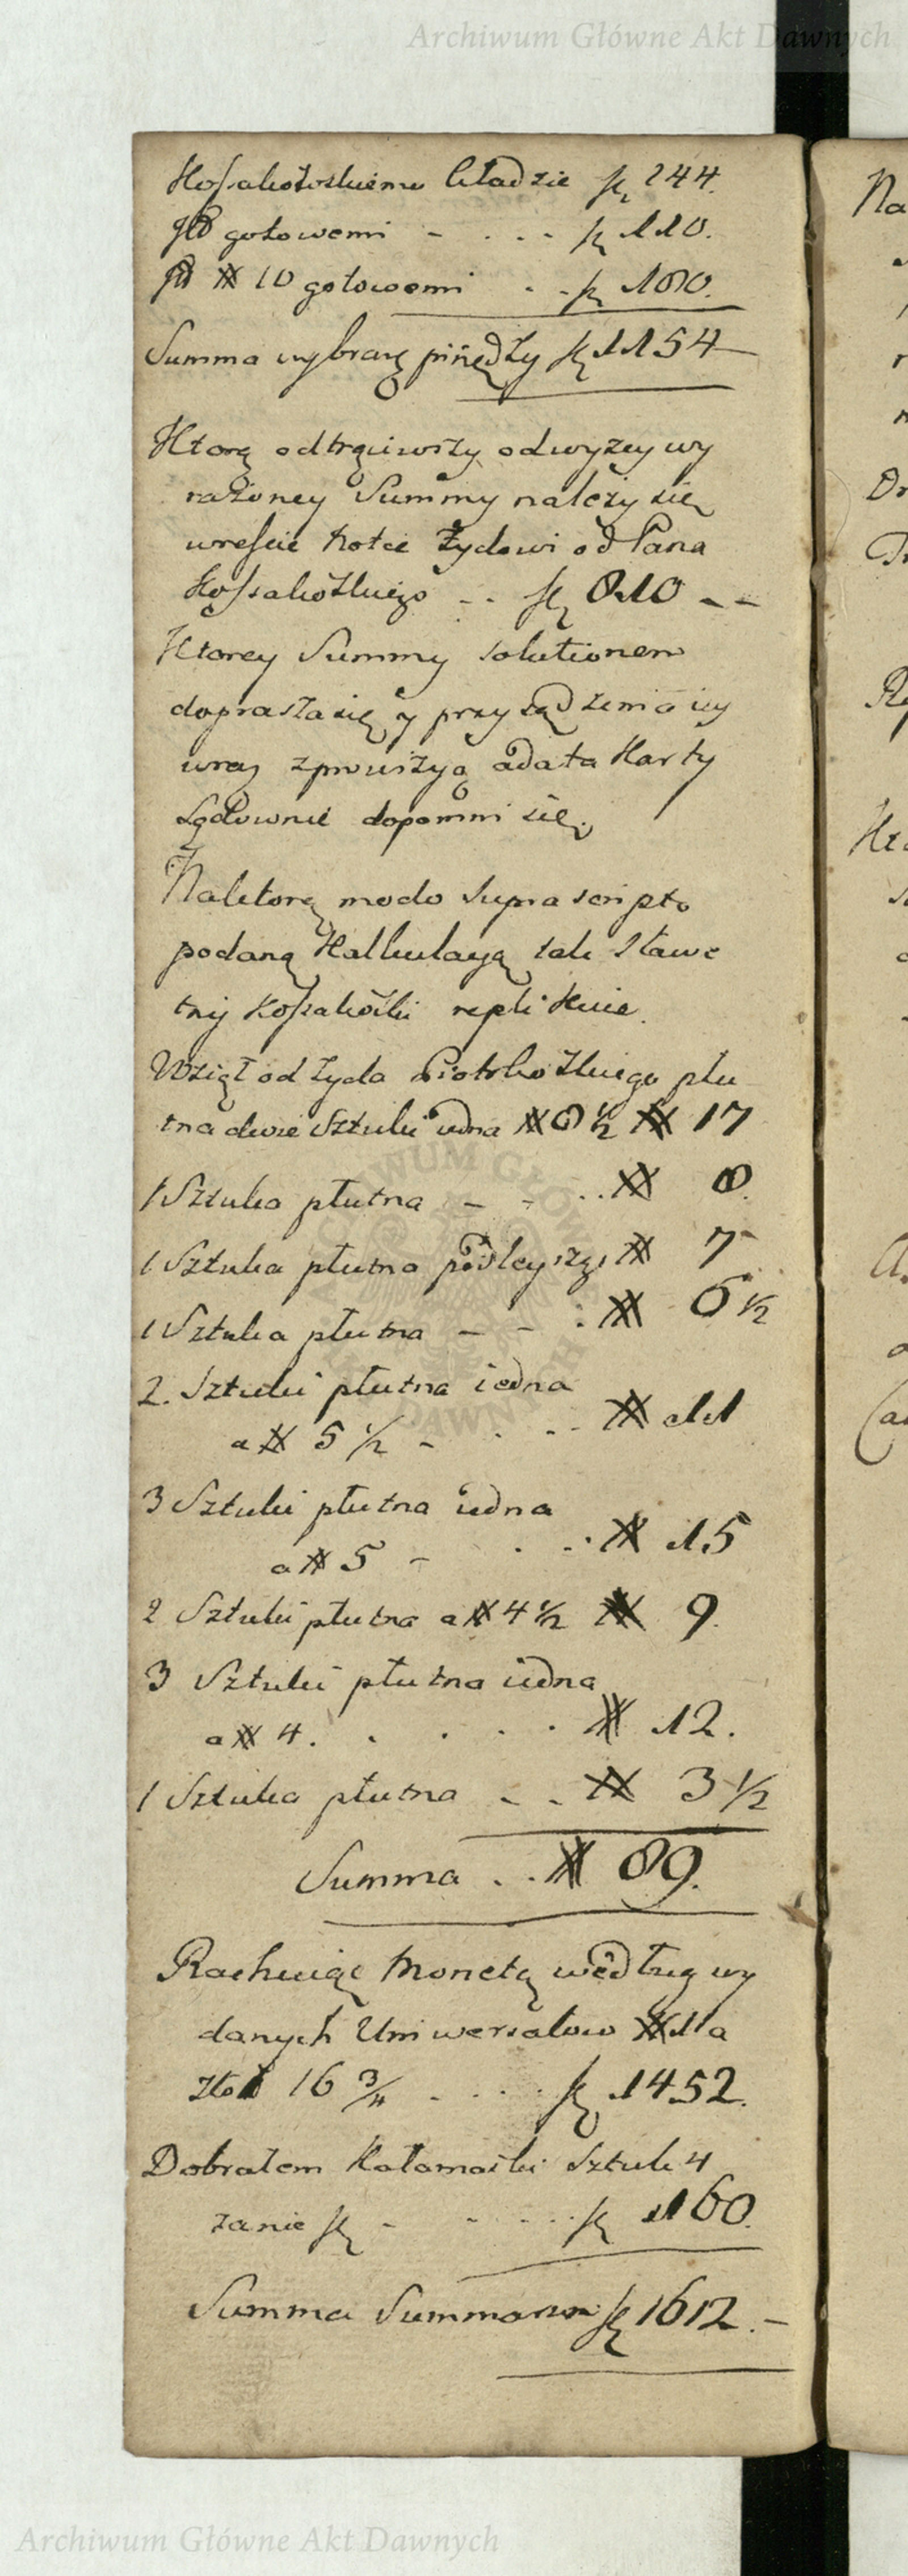 Archiwum Główne Akt Dawnych
Kossakowskiemu kładzie fl 244.
gotowemi - . . - fl 110.
# 10 gotowemi . - fl 180.
Summa wybraney pinędzy fl 1154
Ktorą odtrąciwszy odwyzey wy
rażoney Summy należy się
wreście Żydowi od Pana
Kossakowskiego - . fl 810 - -
Ktorey Summy solutionem
doprasza się y przysądzenia iey
wraz zprowizyą adata Karty
Sądownie dopomni się.
Naktorą modo suprascripto
podaną Kalkulacyą tak Sławe
tny Kossakowski replikuie.
Wziął od Żyda Piotrkowskiego płu
tna dwie Sztuki iedna # 8 ½ # 17
1 Sztuka płutna - - . . # 8.
1 Sztuka płutna podleyszego # 7
1 Sztuka płutna - - : # 6 ½
2. Sztuki płutna iedna
a # 5 ½ - . . - # 11
3 Sztuki płutna iedna
a # 5 - . - . # 15
2 Sztuki płutna a # 4 ½ # 9.
3 Sztuki płutna iedna
a # 4 . . . . . . # 12.
1 Sztuka płutna - - # 3 ½
Summa . . # 89.
Rachuiąc Monetą według wy
danych Uniwersałow # 1 a
16 ¾ . . . . fl 1452.
Dobrałem Kałamaiki Sztuk 4
zanie fl - - . . . . fl 160.
Summa Summarum fl 1612. -
Archiwum Główne Akt Dawnych